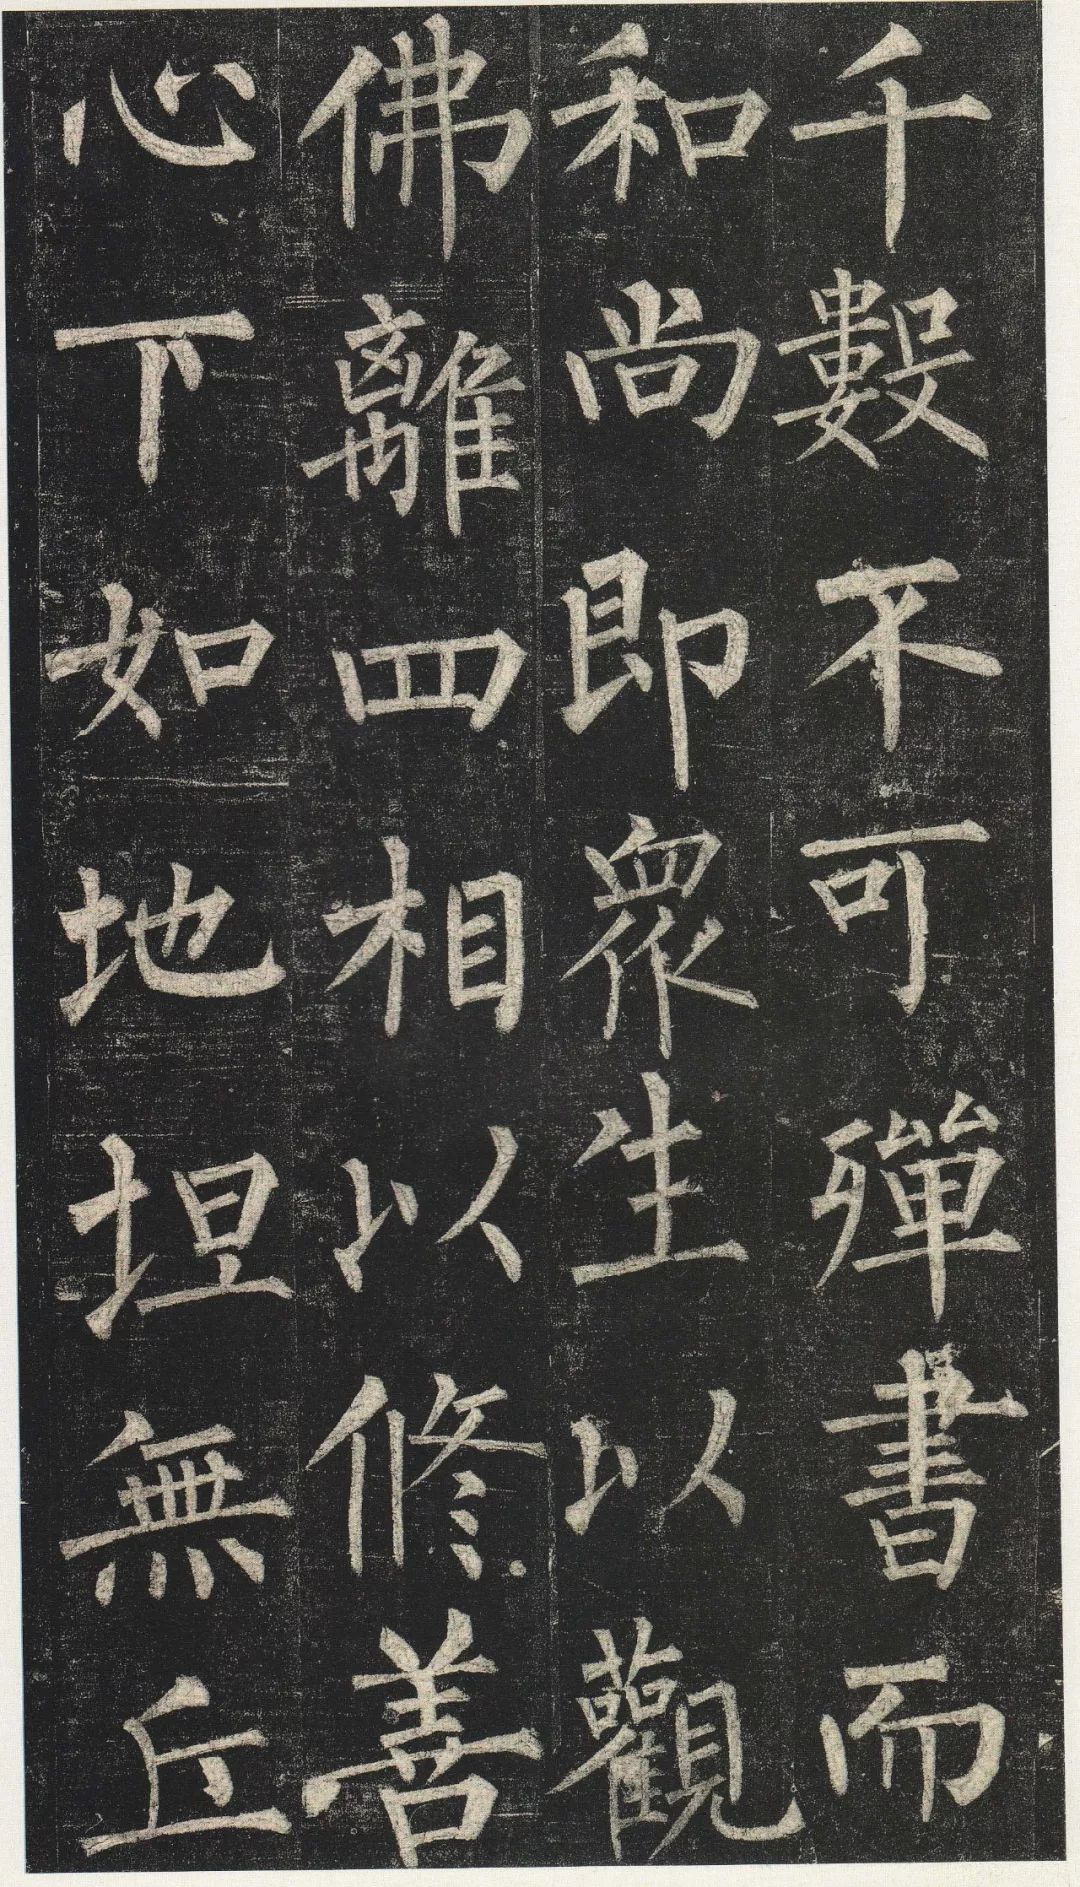 千數不可殫書而
和尚即衆生以觀
佛離四相以修善
心下如地坦無丘